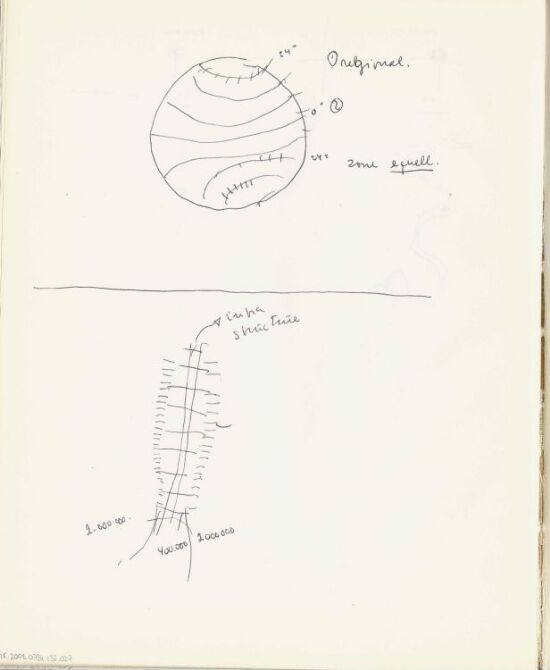 24°
Original.
0° ②
24°
zone equell.
infra
structure
2.000.000.
400.000
2000000